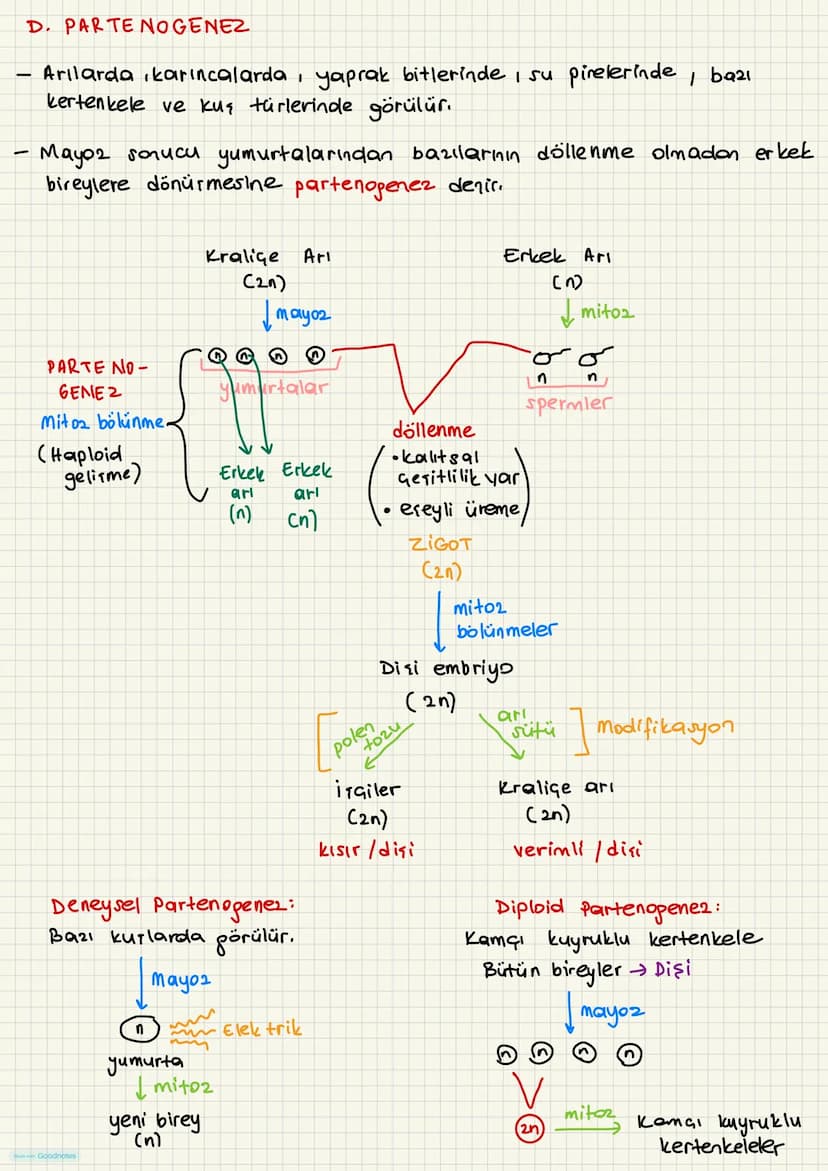 D. PARTENOGENEZ
- Arılarda, karıncalarda, yaprak bitlerinde, su pirelerinde, bazı
kertenkele ve kuş türlerinde görülür.
- Mayoz sonucu yumurtalarından bazılarının döllenme olmadan erkek
bireylere dönürmesine partenogenez denir.
Kraliçe Arı
(2n)
↓ mayoz
Erkek Arı
(n)
↓ mitoz
n n n n
yumurtalar
n n
spermler
PARTENO-
GENEZ
Mitoz bölünme
(Haploid
gelişme)
Erkek Erkek
arı arı
(n) (n)
döllenme
• kalıtsal
çeşitlilik var
• eşeyli üreme
ZİGOT
(2n)
mitoz
bölünmeler
Dişi embriyo
(2n)
polen
tozu
arı
sütü
Modifikasyon
İşçiler
(2n)
kısır / dişi
Kraliçe arı
(2n)
verimli / dişi
Deneysel Partenogenez:
Bazı kuşlarda görülür.
Mayoz
n
Elektrik
yumurta
↓ mitoz
yeni birey
(n)
Diploid Partenogenez:
Kamçı kuyruklu kertenkele
Bütün bireyler → Dişi
mayoz
n n n n
2n
mitoz
Kamçı kuyruklu
kertenkeleler
Made with Goodnotes